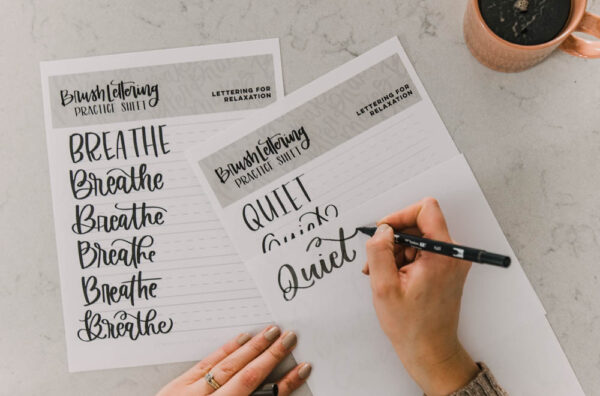 Brush Lettering
PRACTICE SHEET
LETTERING FOR
RELAXATION
BREATHE
Breathe
Breathe
Breathe
Breathe
Breathe
Brush Lettering
PRACTICE SHEET
LETTERING FOR
RELAXATION
QUIET
Quiet
Quiet